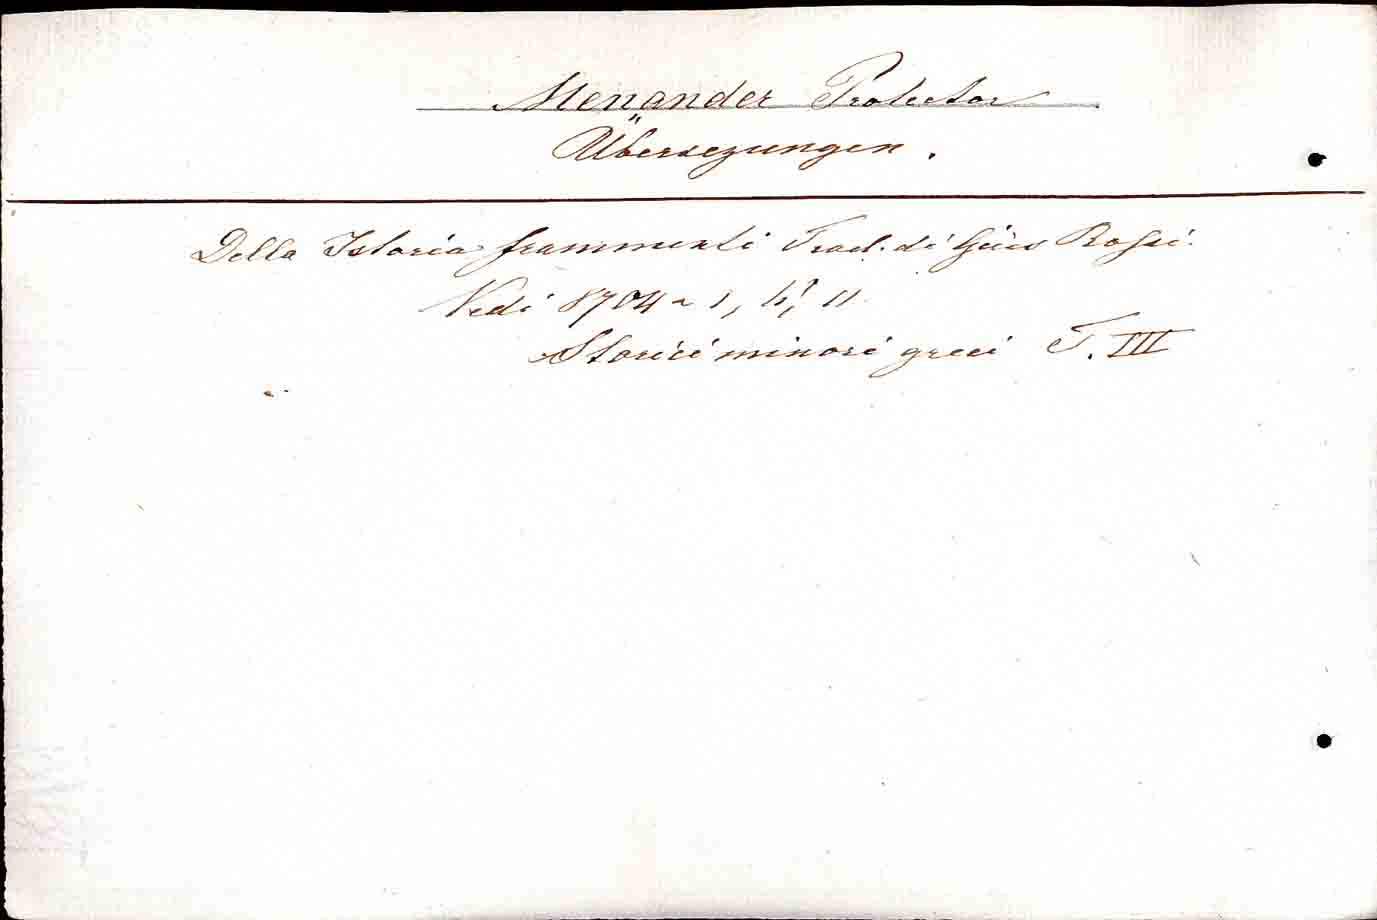 Menander Protector
Übersezungen.
Della Istoria frammenti Trad. di Gius Rossi.
Vedi 8704~1, 4°, 11
Storici minori greci T. III